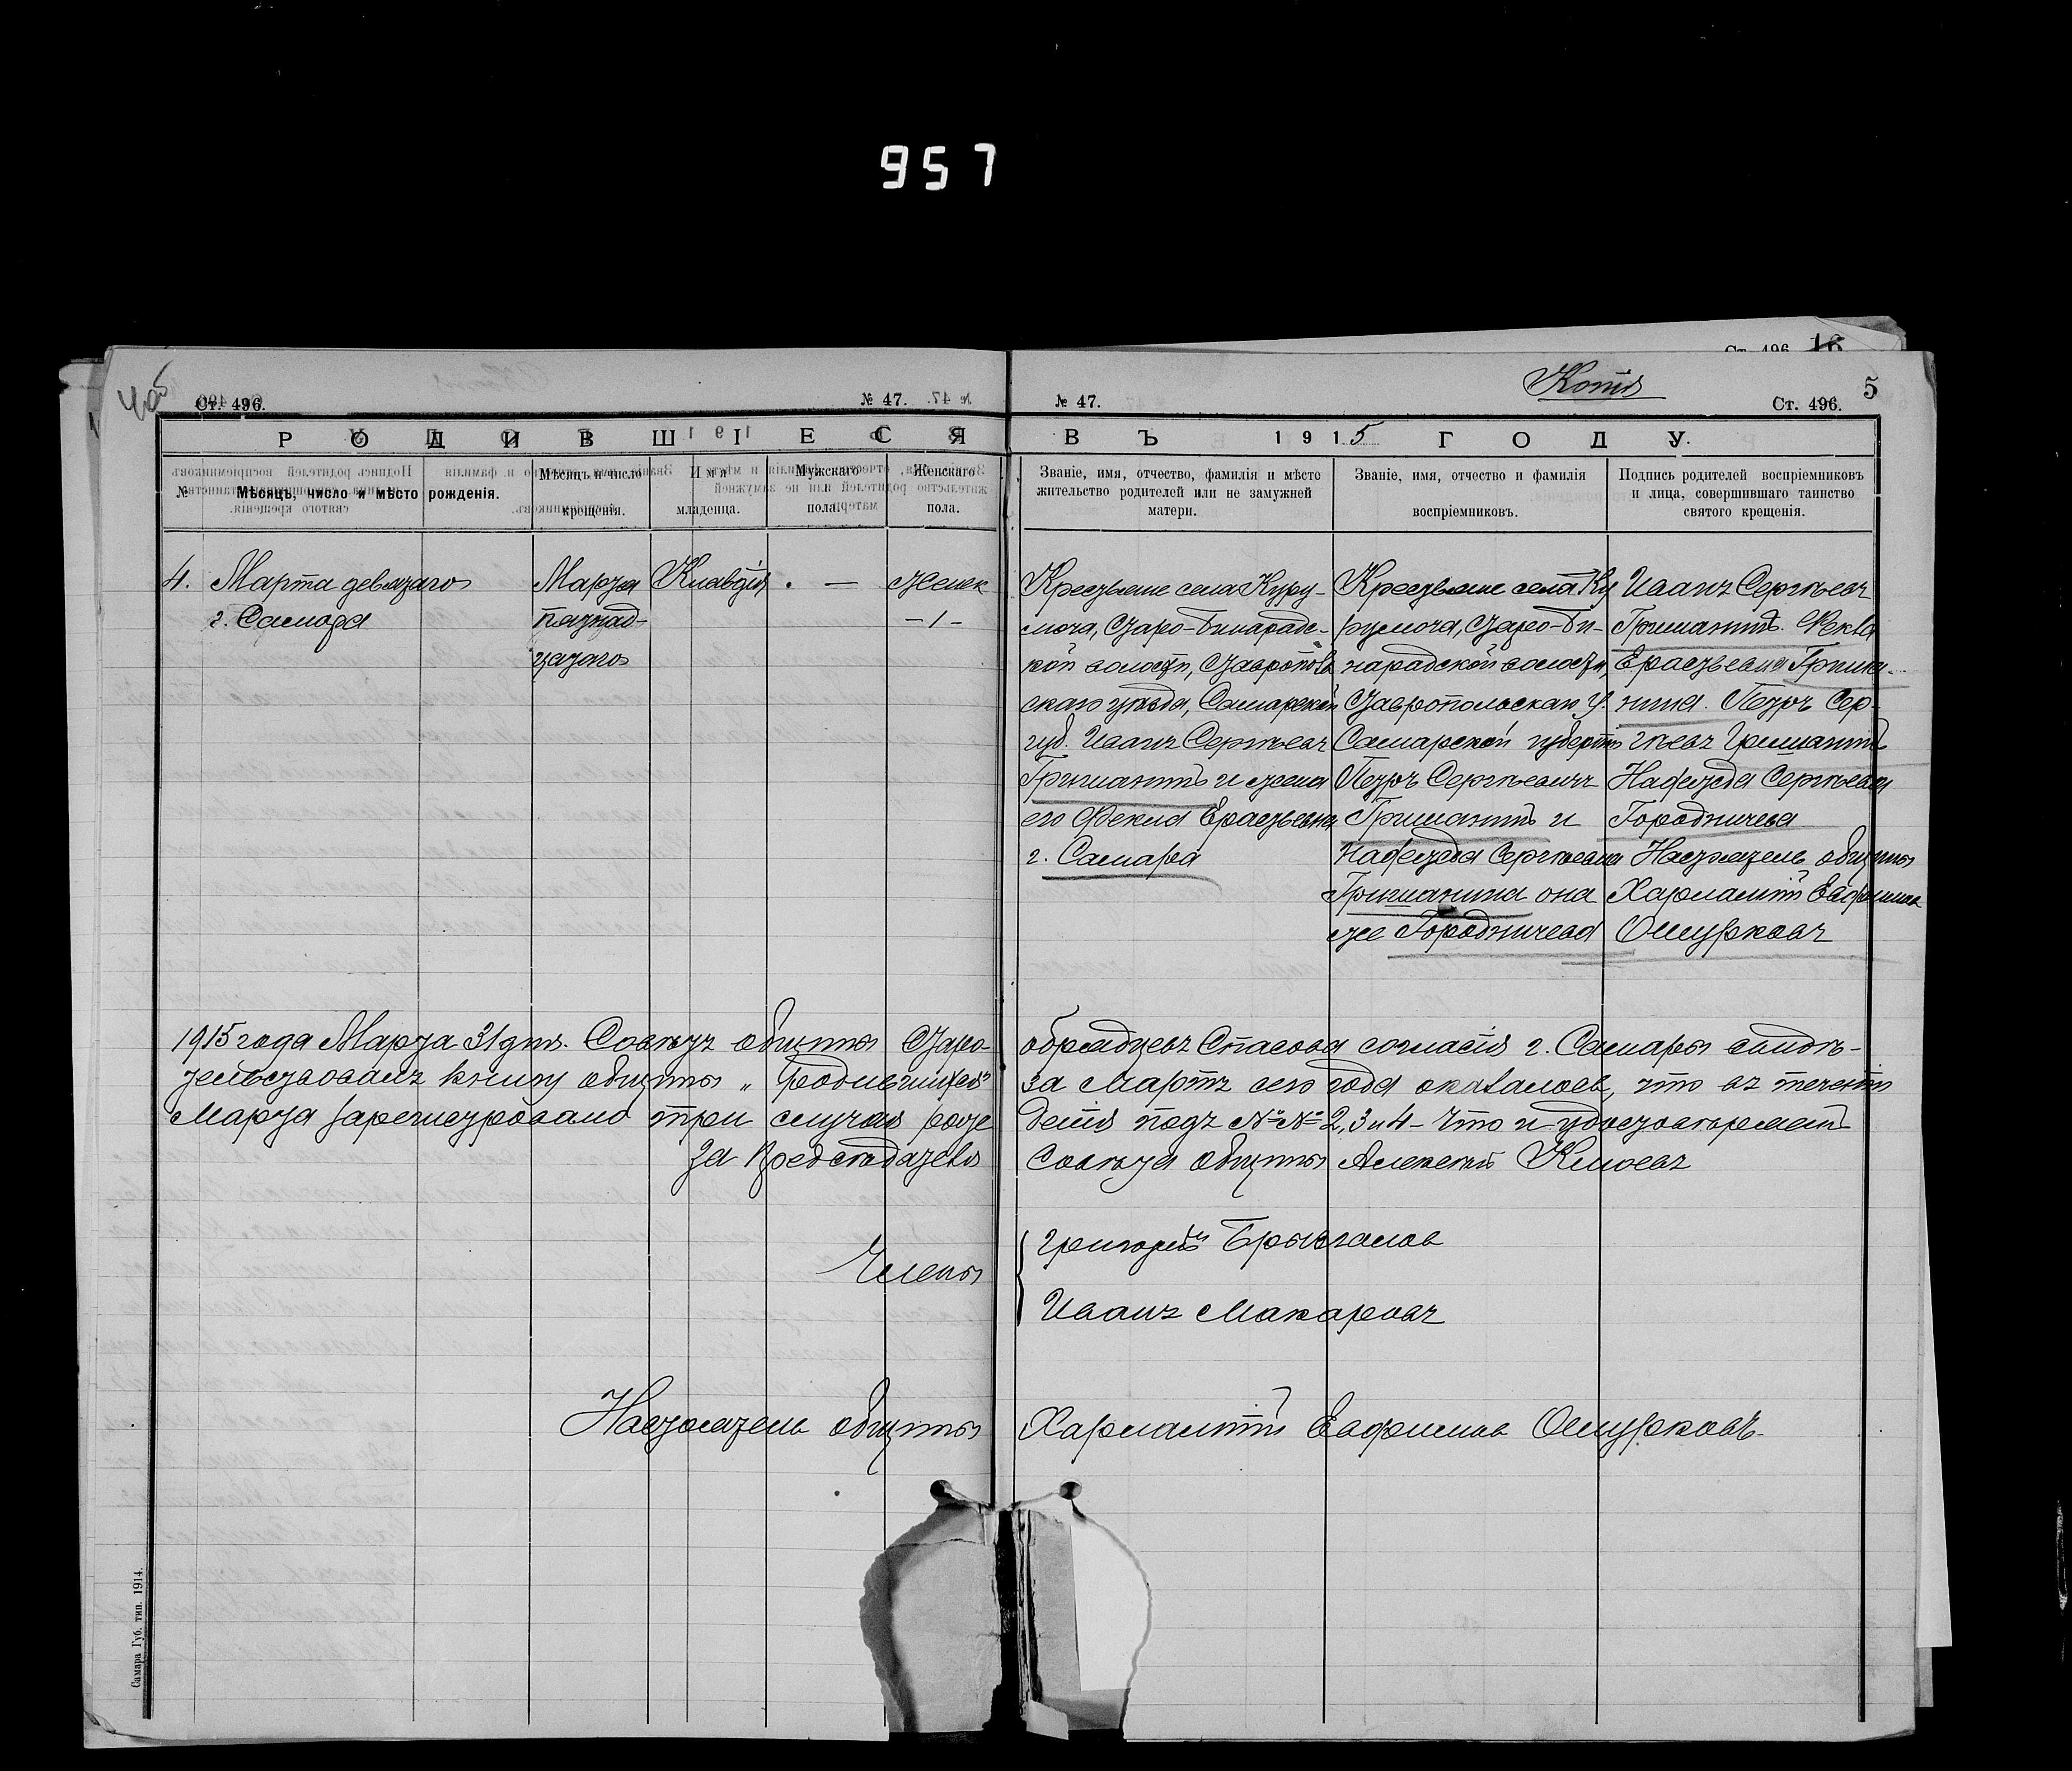 957
Ст. 496. 16
Копія
5
Ст. 496. № 47.
№ 47. Ст. 496.
РОДИВШІЕСЯ
ВЪ 1915 ГОДУ.
№
Мѣсяцъ, число и мѣсто рожденія.
Мѣсяцъ и число
крещенія.
Имя
младенца.
Мужскаго
пола.
Женскаго
пола.
Званіе, имя, отчество, фамилія и мѣсто
жительство родителей или не замужней
матери.
Званіе, имя, отчество и фамилія
воспріемниковъ.
Подпись родителей воспріемниковъ
и лица, совершившаго таинство
святого крещенія.
4. Марта девятаго
г. Самара
Марта
пятнад-
цатаго
Клавдія
—
женск
-1-
Крестьяне села Куру-
моча, Старо-Бинарадс-
кой волости, Ставрополь
скаго уѣзда, Самарской
губ. Иванъ Сергѣевъ
Гришанинъ и жена
его Фекла Ерастьевна
г. Самара
Крестьяне села Ку
румоча, Старо-Би-
нарадской волости,
Ставропольскаго у.
Самарской губерніи
Петръ Сергѣевичъ
Гришанинъ и
Надежда Сергѣевна
Гришанина она
же Городничева
Иванъ Сергѣевъ
Гришанинъ. Фекла
Ерастьевна Гриша-
нина. Петръ Сер-
гѣевъ Гришанинъ
Надежда Сергѣевна
Городничева
Настоятель общины
Харлампій Евфимов
Ошурковъ
1915 года Марта 31 дня. Совѣтъ общины Старо-
обрядцевъ Спасова согласія г. Самары свидѣ-
тельствовалъ книгу общины „Родившихся"
за Мартъ сего года оказалось, что въ теченіи
Марта зарегистровано три случая рож
денія подъ №№ 2, 3 и 4 - Что и удостовѣряетъ
За Председателя
Совѣта общины Алексѣй Климовъ
Члены
Григорій Брызгалов
Иванъ Макаровъ
Настоятель общины
Харлампій Евфимов Ошурковъ
Самара Губ. тип. 1914.